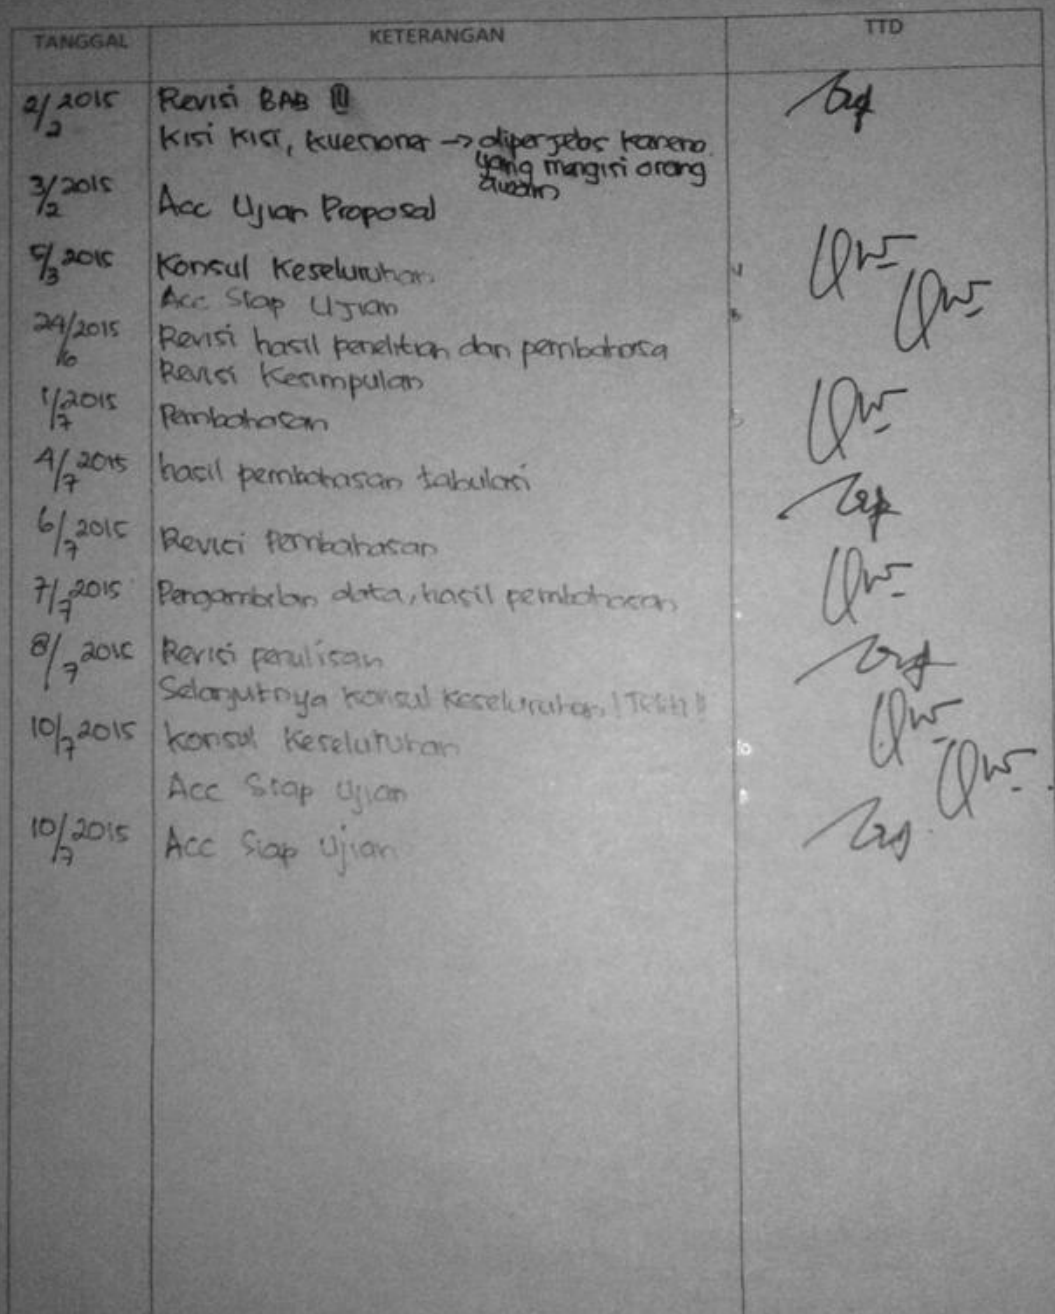 TANGGAL KETERANGAN TTD
2/2 2015 Revisi BAB
Kisi Kisi, Kuesioner → diperjelas karena
yang mengisi orang
awam
3/2 2015 Acc Ujian Proposal
5/3 2015 Konsul Keseluruhan
Acc Siap Ujian
24/6 2015 Revisi hasil penelitian dan pembahasa
Revisi Kesimpulan
1/7 2015 Pembahasan
4/7 2015 hasil pembahasan tabulasi
6/7 2015 Revisi Pembahasan
7/7 2015 Pengambilan data, hasil pembahasan
8/7 2015 Revisi penulisan
Selanjutnya Konsul Keseluruhan! Teliti!!
10/7 2015 Konsul Keseluruhan
Acc Siap Ujian
10/7 2015 Acc Siap Ujian